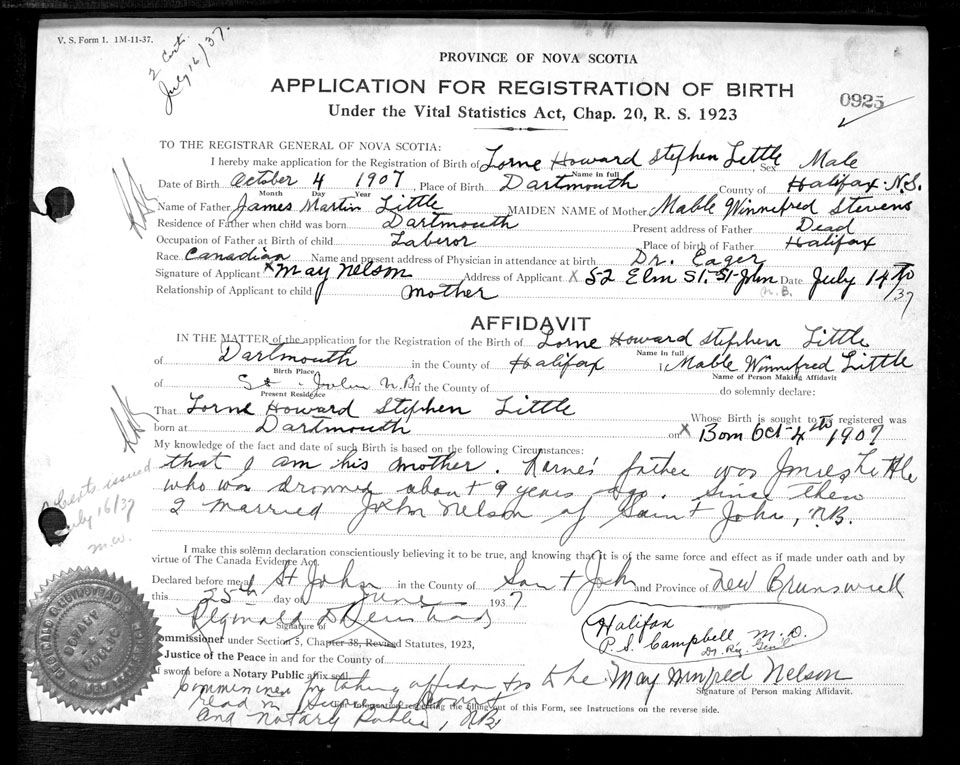 V. S. Form 1. 1M-11-37.
2 Certs.
July 16/37.
PROVINCE OF NOVA SCOTIA
APPLICATION FOR REGISTRATION OF BIRTH
0925
Under the Vital Statistics Act, Chap. 20, R. S. 1923
TO THE REGISTRAR GENERAL OF NOVA SCOTIA:
I hereby make application for the Registration of Birth of Lorne Howard Stephen Little, Sex Male
Name in full
Date of Birth October 4 1907, Place of Birth Dartmouth County of Halifax. N.S.
Month Day Year
Name of Father James Martin Little MAIDEN NAME of Mother Mable Winnifred Stevens
Residence of Father when child was born Dartmouth Present address of Father Dead
Occupation of Father at Birth of child Laberor Place of birth of Father Halifax
Race Canadian Name and present address of Physician in attendance at birth Dr. Eager
Signature of Applicant X May Nelson Address of Applicant X 52 Elm St. St John Date July 14th
N.B. /37
Relationship of Applicant to child mother
AFFIDAVIT
IN THE MATTER of the application for the Registration of the Birth of Lorne Howard Stephen Little
Name in full
of Dartmouth in the County of Halifax I, Mable Winnifred Little
Birth Place Name of Person Making Affidavit
of St. John N.B. in the County of do solemnly declare:
Present Residence
That Lorne Howard Stephen Little Whose Birth is sought to be registered was
born at Dartmouth on X Born Oct 4th 1907
My knowledge of the fact and date of such Birth is based on the following Circumstances:
that I am his mother. father was James Little
who was drowned about 9 years ago. Since then
I married John Nelson of Saint John, N.B.
issued
July 16/37
m.w.
I make this solemn declaration conscientiously believing it to be true, and knowing that it is of the same force and effect as if made under oath and by
virtue of The Canada Evidence Act.
Declared before me at St John in the County of Saint John and Province of New Brunswick
this 25th day of June 1937
Reginald
Signature of
Halifax
P.S. Campbell M.D.
Dy. Rg. Genl
Commissioner under Section 5, Chapter 38, Revised Statutes, 1923,
Justice of the Peace in and for the County of
If sworn before a Notary Public affix seal.
May Winifred Nelson
Signature of Person making Affidavit.
For Information respecting the filling out of this Form, see Instructions on the reverse side.
Commissioner for taking affidavits to be
read in Supreme Court
and Notary Public, NB
NOTARY
PUBLIC